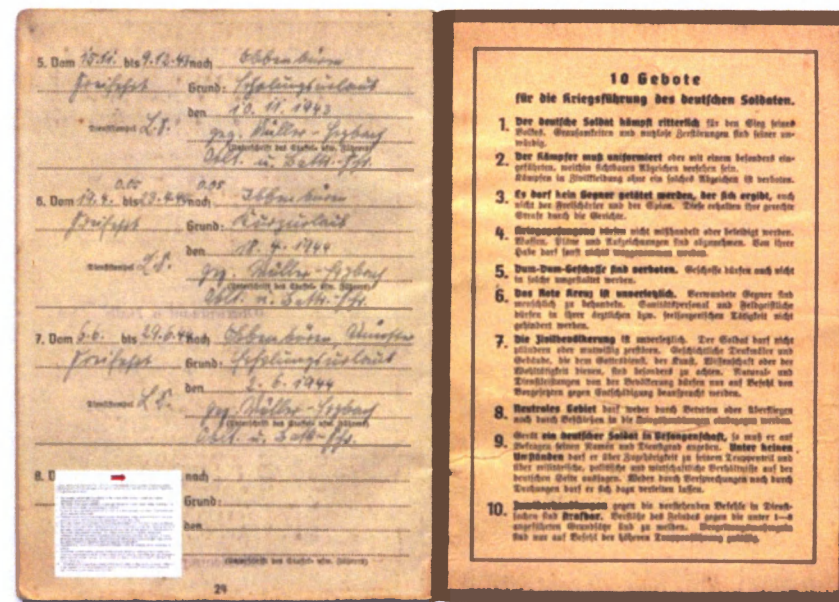 5. Vom 15.11. bis 9.12.43 nach Ibbenbüren
Freifahrt Grund: Erholungsurlaub
den 10. 11. 1943
Dienststempel L.S. gez. Müller-
(Unterschrift des Staffel- usw. Führers)
Oblt. u. Battr.-Fhr.
6. Vom 19.4. 0.00 bis 23.4.44 0.05 nach Ibbenbüren
Freifahrt Grund: Kurzurlaub
den 18. 4. 1944
Dienststempel L.S. gez. Müller-
(Unterschrift des Staffel- usw. Führers)
Oblt. u. Battr.-Fhr.
7. Vom 6.6. bis 29.6.44 nach Ibbenbüren, Münster
Freifahrt Grund: Erholungsurlaub
den 2. 6. 1944
Dienststempel L.S. gez. Müller-
(Unterschrift des Staffel- usw. Führers)
Oblt. u. Battr.-Fhr.
8. nach
Grund:
den
(Unterschrift des Staffel- usw. Führers)
10 Gebote
für die Kriegsführung des deutschen Soldaten.
1. Der deutsche Soldat kämpft ritterlich für den Sieg seines
Volkes. Grausamkeiten und nutzlose Zerstörungen sind seiner un-
würdig.
2. Der Kämpfer muß uniformiert oder mit einem besonders ein-
geführten, weithin sichtbaren Abzeichen versehen sein.
Kämpfen in Zivilkleidung ohne ein solches Abzeichen ist verboten.
3. Es darf kein Gegner getötet werden, der sich ergibt, auch
nicht der Freischärler und der Spion. Diese erhalten ihre gerechte
Strafe durch die Gerichte.
4. Kriegsgefangene dürfen nicht mißhandelt oder beleidigt werden.
Waffen, Pläne und Aufzeichnungen sind abzunehmen. Von ihrer
Habe darf sonst nichts weggenommen werden.
5. Dum-Dum-Geschosse sind verboten. Geschosse dürfen auch nicht
in solche umgestaltet werden.
6. Das Rote Kreuz ist unverletzlich. Verwundete Gegner sind
menschlich zu behandeln. Sanitätspersonal und Feldgeistliche
dürfen in ihrer ärztlichen bzw. seelsorgerischen Tätigkeit nicht
gehindert werden.
7. Die Zivilbevölkerung ist unverletzlich. Der Soldat darf nicht
plündern oder mutwillig zerstören. Geschichtliche Denkmäler und
Gebäude, die dem Gottesdienst, der Kunst, Wissenschaft oder der
Wohltätigkeit dienen, sind besonders zu achten. Natural- und
Dienstleistungen von der Bevölkerung dürfen nur auf Befehl von
Vorgesetzten gegen Entschädigung beansprucht werden.
8. Neutrales Gebiet darf weder durch Betreten oder Überfliegen
noch durch Beschießen in die Kriegshandlungen einbezogen werden.
9. Gerät ein deutscher Soldat in Gefangenschaft, so muß er auf
Befragen seinen Namen und Dienstgrad angeben. Unter keinen
Umständen darf er über Zugehörigkeit zu seinem Truppenteil und
über militärische, politische und wirtschaftliche Verhältnisse auf der
deutschen Seite aussagen. Weder durch Versprechungen noch durch
Drohungen darf er sich dazu verleiten lassen.
10. Zuwiderhandlungen gegen die vorstehenden Befehle in Dienst-
sachen sind strafbar. Verstöße des Feindes gegen die unter 1—8
angeführten Grundsätze sind zu melden. Vergeltungsmaßregeln
sind nur auf Befehl der höheren Truppenführung zulässig.
29